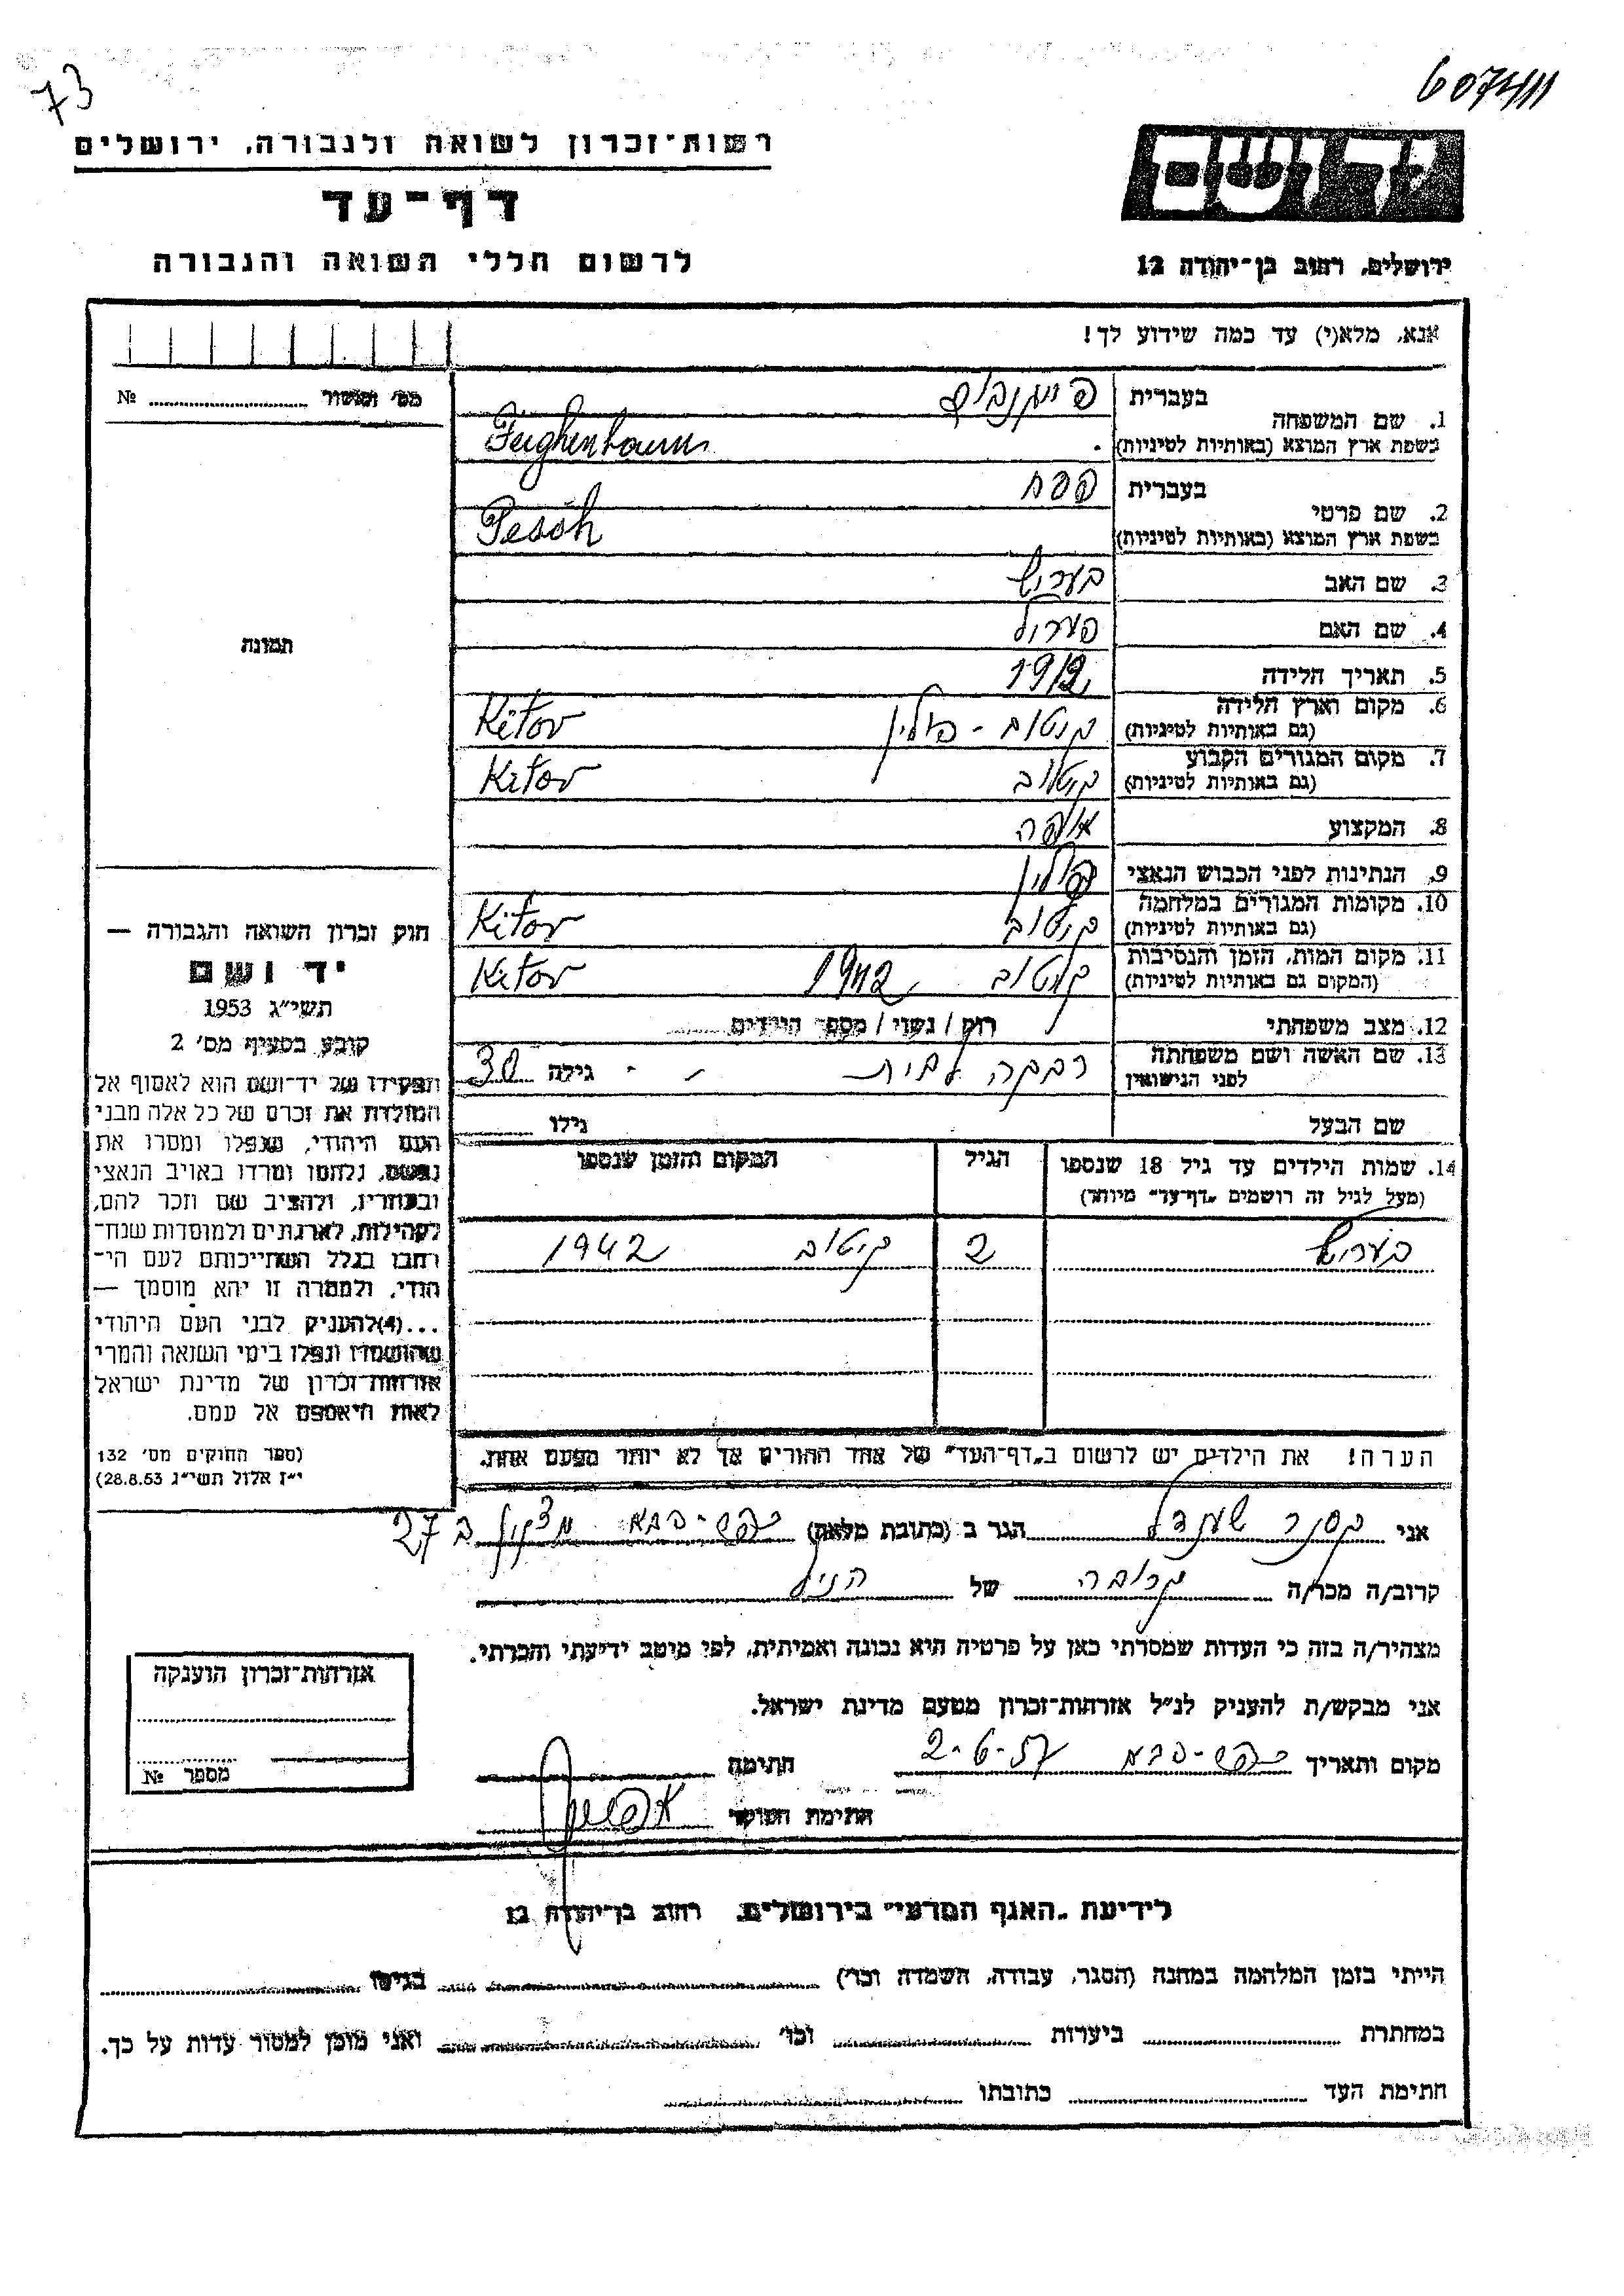 73
6074/11
רשות־זכרון לשואה ולגבורה, ירושלים
דף־עד
לרשום חללי השואה והגבורה
יד ושם
ירושלים, רחוב בן־יהודה 12
אנא, מלא(י) עד כמה שידוע לך!
מס׳ №
1. שם המשפחה
בעברית פייגנבוים
בשפת ארץ המוצא (באותיות לטיניות) Feighenbaum
2. שם פרטי
בעברית פסח
בשפת ארץ המוצא (באותיות לטיניות) Pesoh
3. שם האב בעריש
4. שם האם פערל
5. תאריך הלידה 1912
6. מקום וארץ הלידה קיטוב - פולין Kitov
(גם באותיות לטיניות)
7. מקום המגורים הקבוע קיטוב Kitov
(גם באותיות לטיניות)
8. המקצוע אופה
9. הנתינות לפני הכבוש הנאצי פולין
10. מקומות המגורים במלחמה קיטוב Kitov
(גם באותיות לטיניות)
11. מקום המות, הזמן והנסיבות קיטוב 1942 Kitov
(המקום גם באותיות לטיניות)
12. מצב משפחתי רוק / נשוי / מספר הילדים
13. שם האשה ושם משפחתה רבקה לבית - - גילה 30
לפני הנישואין
שם הבעל גילו
14. שמות הילדים עד גיל 18 שנספו הגיל המקום והזמן שנספו
(מעל לגיל זה רושמים „דף־עד” מיוחד)
בעריש 2 קיטוב 1942
הערה! את הילדים יש לרשום ב„דף־העד” של אחד ההורים אך לא יותר מפעם אחת.
תמונה
חוק זכרון השואה והגבורה —
יד ושם
תשי״ג 1953
קובע בסעיף מס׳ 2
תפקידו של יד־ושם הוא לאסוף אל
המולדת את זכרם של כל אלה מבני
העם היהודי, שנפלו ומסרו את
נפשם, נלחמו ומרדו באויב הנאצי
ובעוזריו, ולהציב שם וזכר להם,
לקהילות, לארגונים ולמוסדות שנח־
רבו בגלל השתייכותם לעם הי־
הודי, ולמטרה זו יהא מוסמך —
...(4)להעניק לבני העם היהודי
שהושמדו ונפלו בימי השואה והמרי
אזרחות־זכרון של מדינת ישראל
לאות היאספם אל עמם.
(ספר החוקים מס׳ 132
י״ז אלול תשי״ג 28.8.53)
אני קסנר שענדל הגר ב (כתובת מלאה) כפר-סבא ב 27
קרוב/ה מכר/ה קרובה של הניל
מצהיר/ה בזה כי העדות שמסרתי כאן על פרטיה היא נכונה ואמיתית, לפי מיטב ידיעתי והכרתי.
אני מבקש/ת להעניק לנ״ל אזרחות־זכרון מטעם מדינת ישראל.
מקום ותאריך כפר-סבא 2-6-57 חתימה
חתימת הפוקד
אזרחות־זכרון הוענקה
מספר №
לידיעת „האגף המדעי” בירושלים, רחוב בן־יהודה 12
הייתי בזמן המלחמה במחנה (הסגר, עבודה, השמדה וכו׳) בגיטו
במחתרת ביערות וכו׳ ואני מוכן למסור עדות על כך.
חתימת העד כתובתו